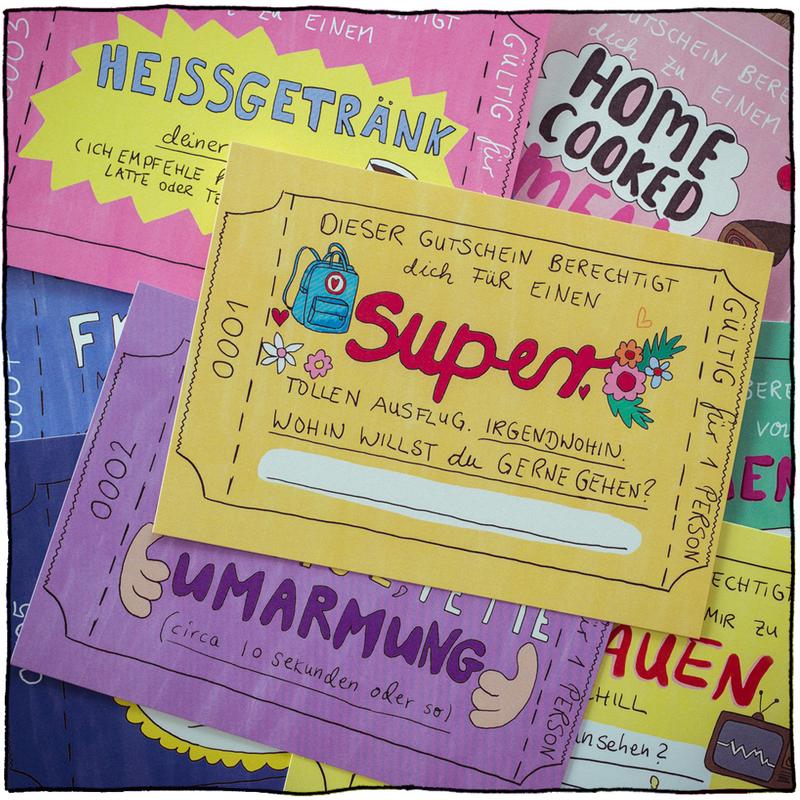 0003
ZU EINEM
HEISSGETRÄNK
deiner
(ICH EMPFEHLE
LATTE ODER
GÜLTIG für
GUTSCHEIN
dich ZU EINEM
HOME
COOKED
MEAL
0001
DIESER GUTSCHEIN BERECHTIGT
dich FÜR EINEN
super
TOLLEN AUSFLUG. IRGENDWOHIN.
WOHIN WILLST du GERNE GEHEN?
GÜLTIG für 1 PERSON
0002
UMARMUNG
(circa 10 sekunden oder so)
für 1 PERSON
MIR ZU
CHILL